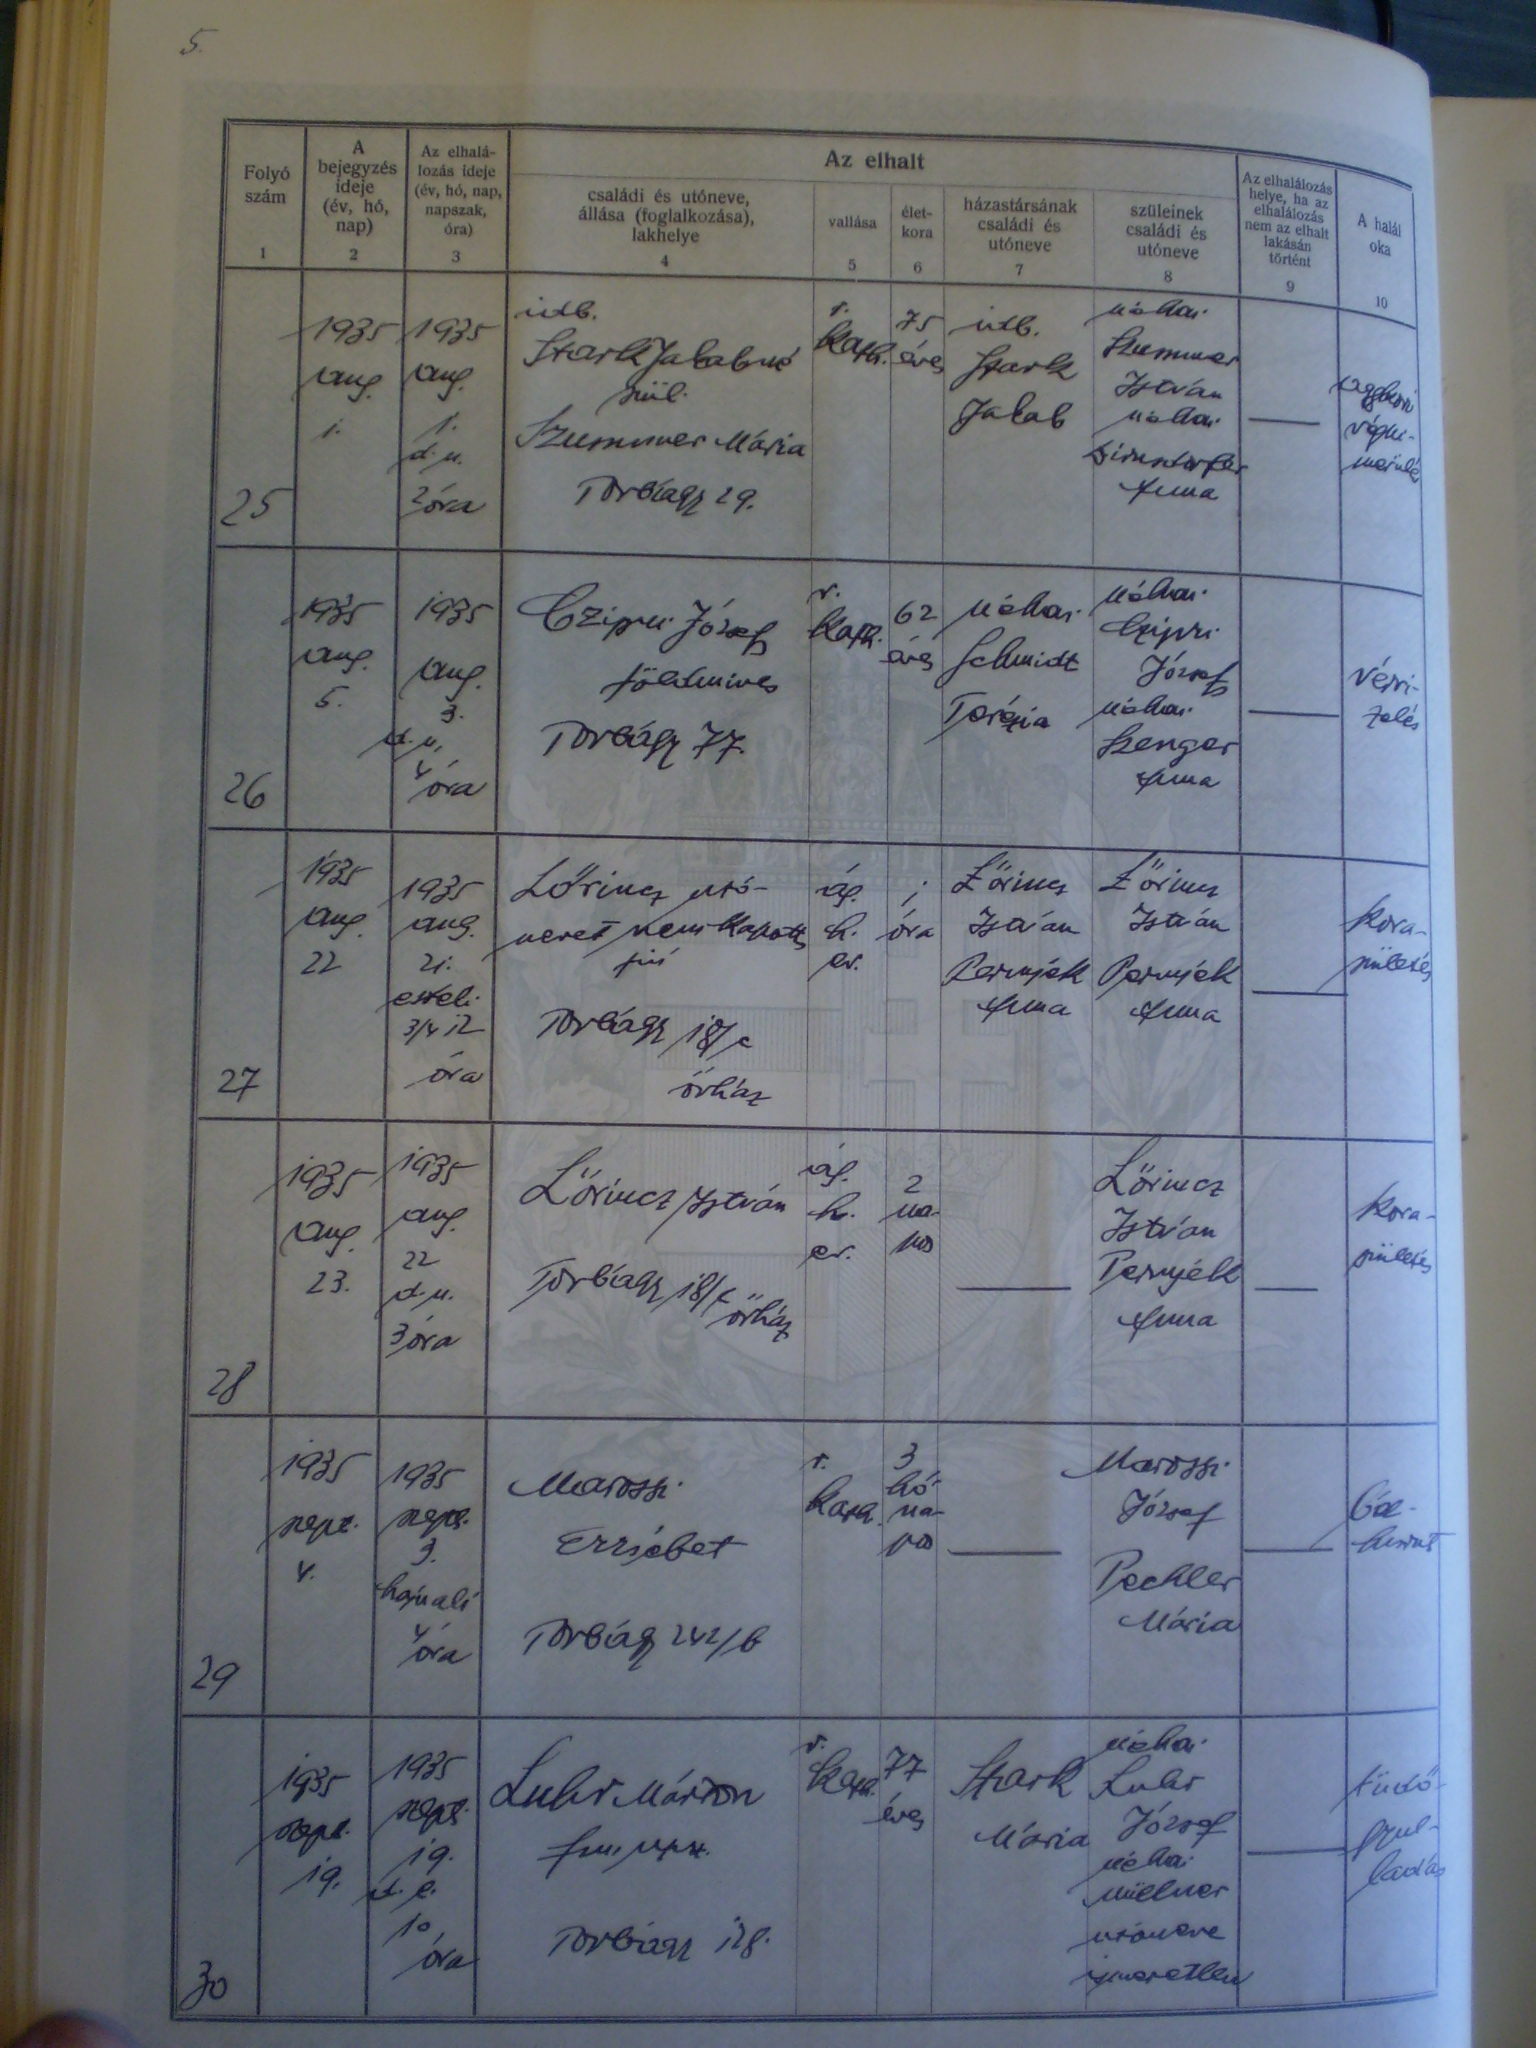 5.
Folyó
szám
1
A
bejegyzés
ideje
(év, hó,
nap)
2
Az elhalá-
lozás ideje
(év, hó, nap,
napszak,
óra)
3
Az elhalt
családi és utóneve,
állása (foglalkozása),
lakhelye
4
vallása
5
élet-
kora
6
házastársának
családi és
utóneve
7
szüleinek
családi és
utóneve
8
Az elhalálozás
helye, ha az
elhalálozás
nem az elhalt
lakásán
történt
9
A halál
oka
10
25
1935
aug.
1.
1935
aug.
1.
d. u.
2 óra
idb.
Stark Jakabné
szül.
Szummer Mária
Torbágy 29.
r.
kath.
75
éves
idb.
Stark
Jakab
néhai
Szummer
István
néhai
Anna
aggkori
végki-
merülés
26
1935
aug.
5.
1935
aug.
3.
d. u.
4
óra
Czipri József
földmives
Torbágy 77.
r.
kath.
62
éves
néhai
Schmidt
Terézia
néhai
Czipri
József
néhai
Szenger
Anna
27
1935
aug.
22
1935
aug.
21.
esteli
3/4 12
óra
Lőrincz utó-
nevet nem kapott
fiú
Torbágy 18/c
őrház
ág.
h.
ev.
1
óra
Lőrincz
István
Pernyék
Anna
Lőrincz
István
Pernyék
Anna
kora-
születés
28
1935
aug.
23.
1935
aug.
22
d. u.
3 óra
Lőrincz István
Torbágy 18/c
őrház
ág.
h.
ev.
2
na-
pos
Lőrincz
István
Pernyék
Anna
kora-
születés
29
1935
szept.
4.
1935
szept.
3.
hajnali
4
óra
Marossi
Erzsébet
Torbágy 242/b
r.
kath.
3
hó-
na-
pos
Marossi
József
Pechler
Mária
Bél-
hurut
30
1935
szept.
19.
1935
szept.
19.
d. e.
10
óra
Luhr Márton
Torbágy 128.
r.
kath.
77
éves
Stark
Mária
néhai
Luhr
József
néhai
Müllner
utóneve
ismeretlen
tüdő-